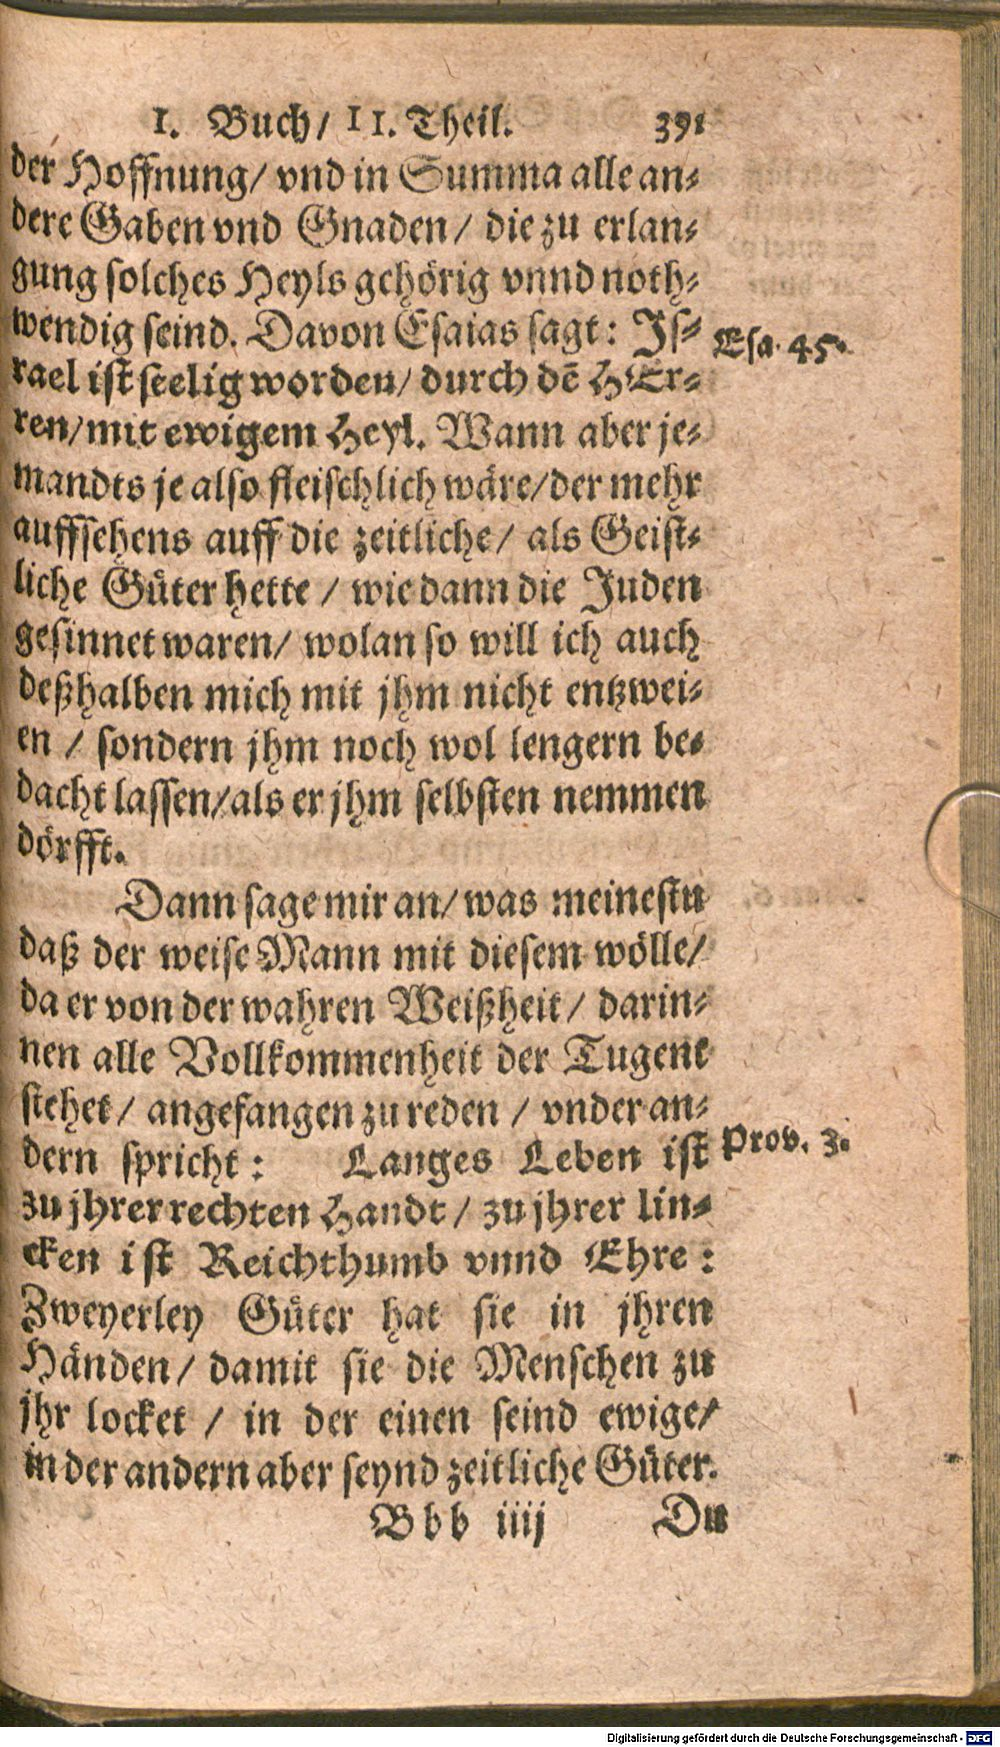 I. Buch/ II. Theil. 391
der Hoffnung/ vnd in Summa alle an-
dere Gaben vnd Gnaden/ die zu erlan-
gung solches Heyls gehörig vnnd noth-
wendig seind. Davon Esaias sagt: Js-
Esa. 45.
rael ist seelig worden/ durch dē HEr-
ren/ mit ewigem Heyl. Wann aber je-
mandts je also fleischlich wäre/ der mehr
auffsehens auff die zeitliche/ als Geist-
liche Güter hette/ wie dann die Juden
gesinnet waren/ wolan so will ich auch
deßhalben mich mit jhm nicht entzwei-
en/ sondern jhm noch wol lengern be-
dacht lassen/ als er jhm selbsten nemmen
dörfft.
Dann sage mir an/ was meinestu
daß der weise Mann mit diesem wölle/
da er von der wahren Weißheit/ darin-
nen alle Vollkommenheit der Tugent
stehet/ angefangen zu reden/ vnder an-
dern spricht: Langes Leben ist
Prov. 3.
zu jhrer rechten Handt/ zu jhrer lin-
cken ist Reichthumb vnnd Ehre:
Zweyerley Güter hat sie in jhren
Händen/ damit sie die Menschen zu
jhr locket/ in der einen seind ewige/
in der andern aber seynd zeitliche Güter.
Bbb iiij Du
Digitalisierung gefördert durch die Deutsche Forschungsgemeinschaft - DFG